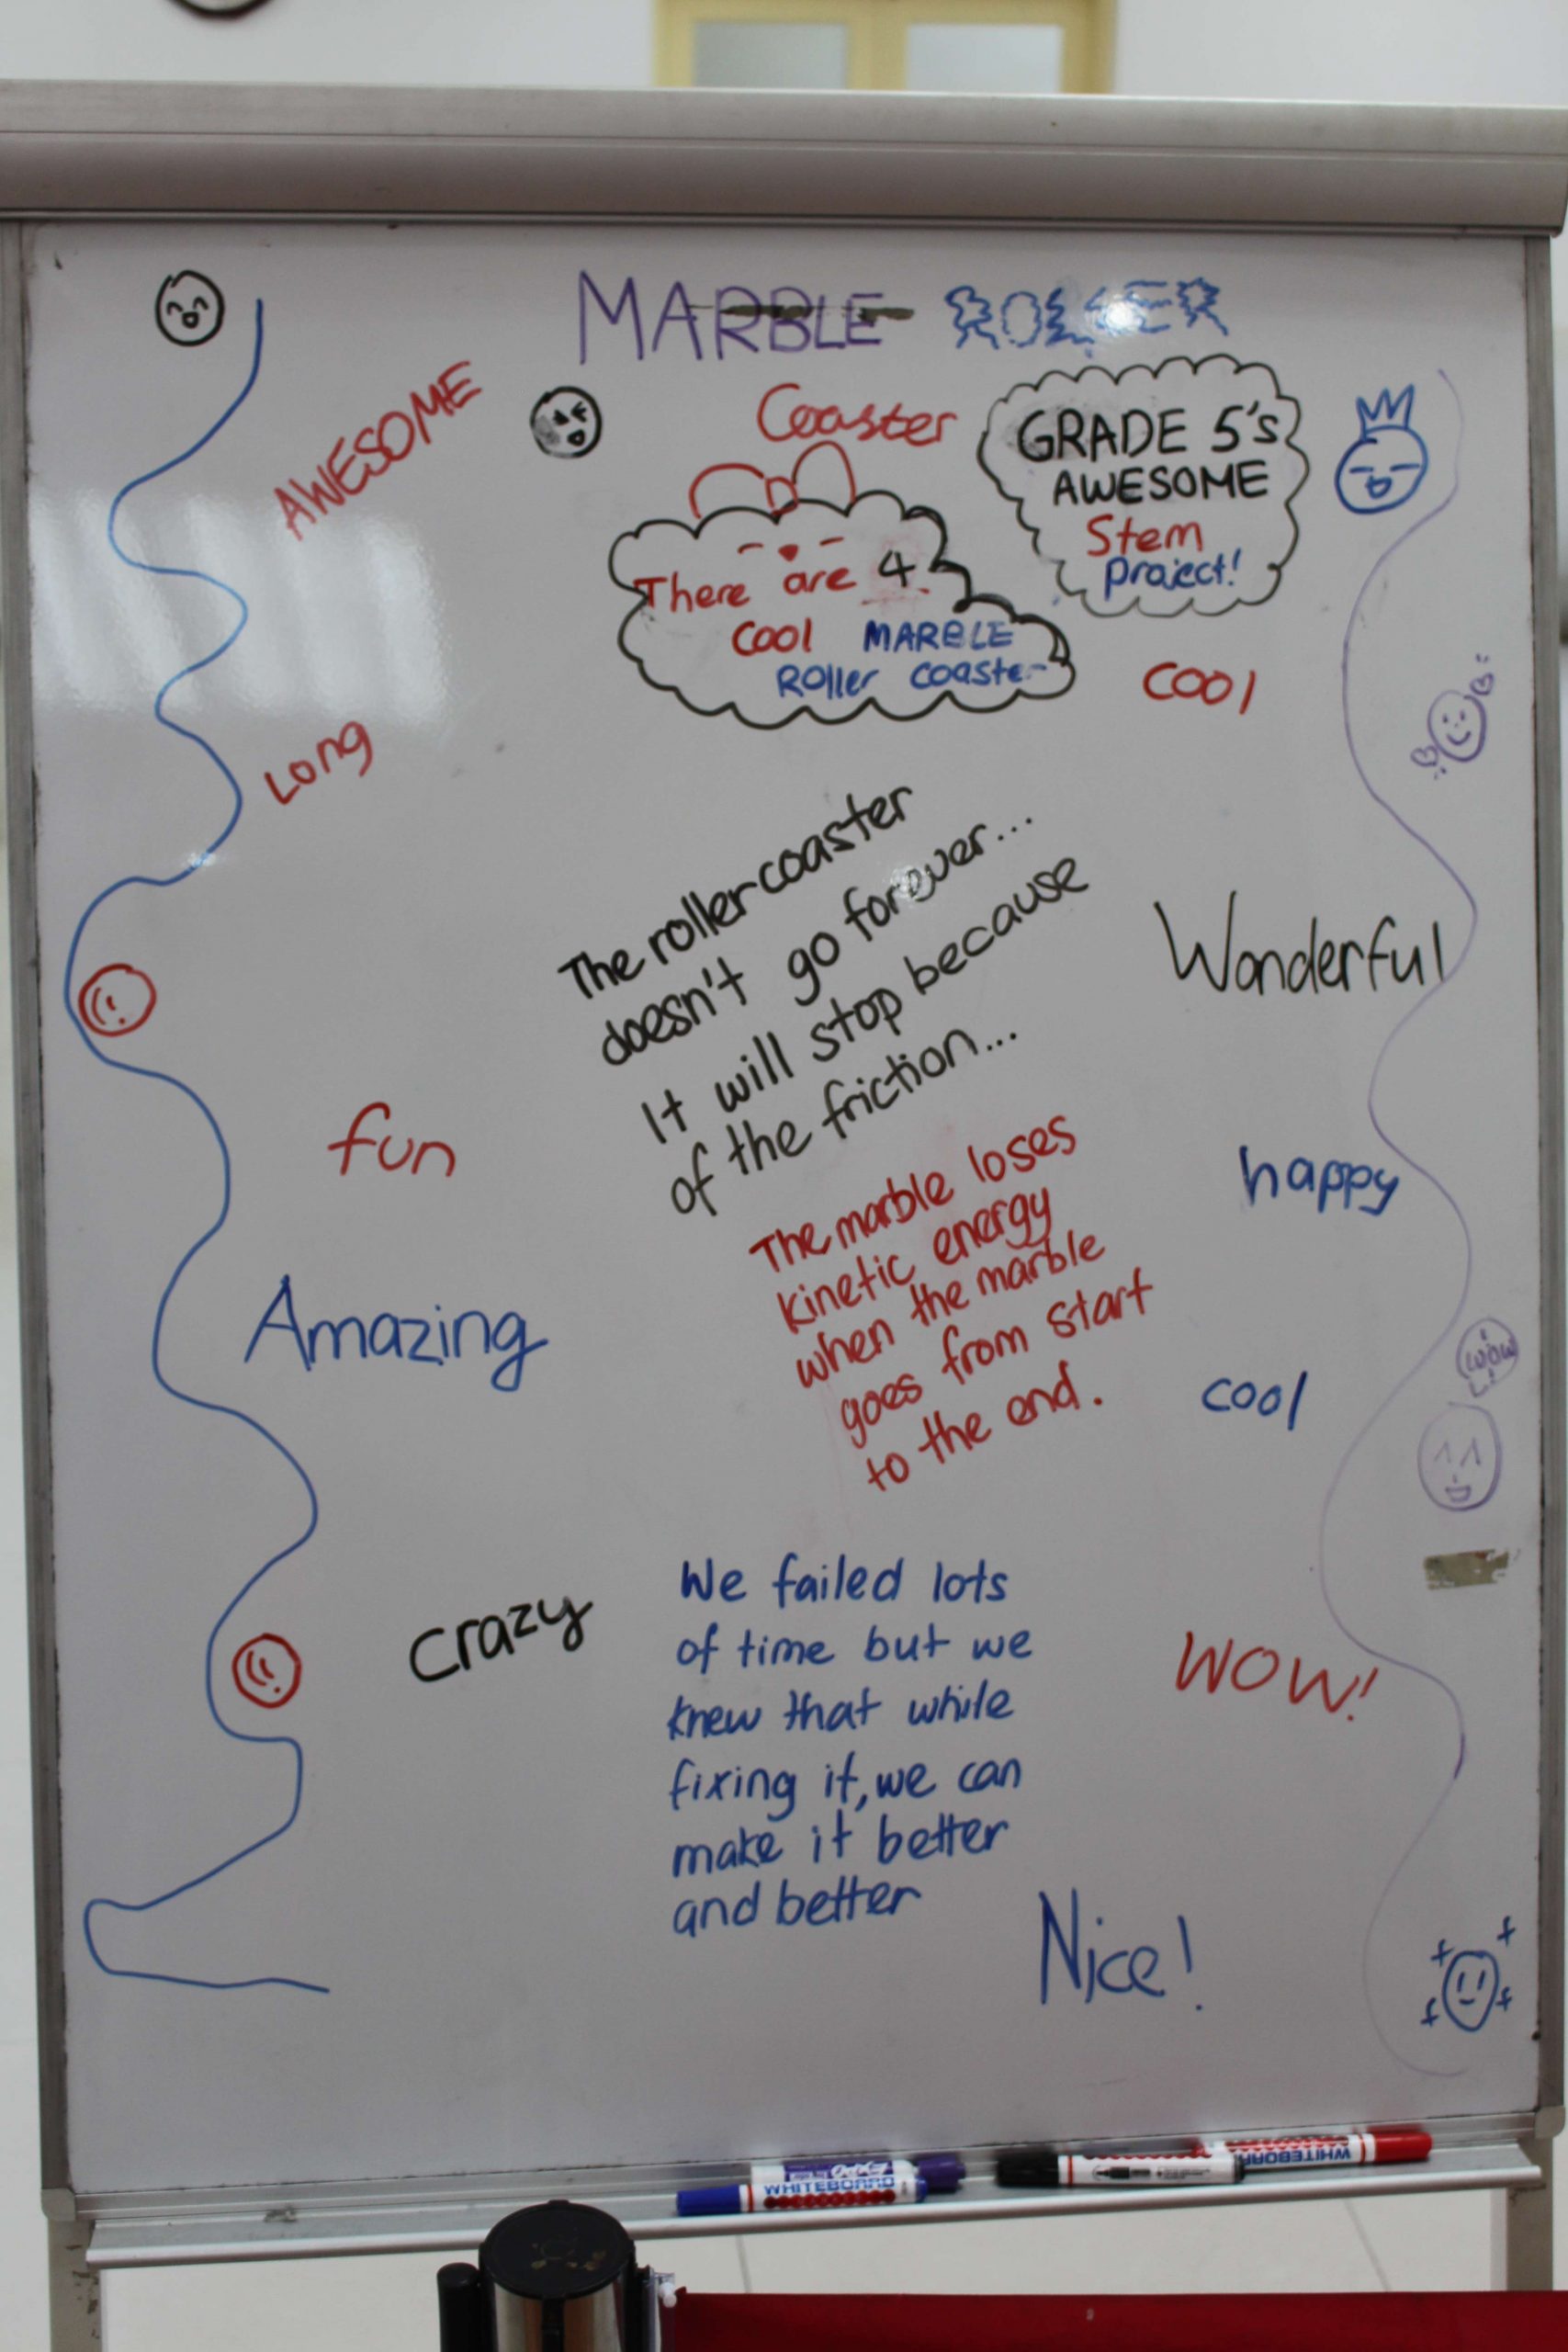 MARBLE ROLLER
Coaster
AWESOME
GRADE 5's
AWESOME
Stem
Project!
There are 4
cool MARBLE
Roller coaster
cool
Long
The roller coaster
doesn't go forever...
It will stop because
of the friction...
Wonderful
fun
The marble loses
kinetic energy
when the marble
goes from start
to the end.
happy
Amazing
cool
wow
crazy
We failed lots
of time but we
knew that while
fixing it, we can
make it better
and better
WOW!
Nice!
WHITEBOARD
WHITEBOARD